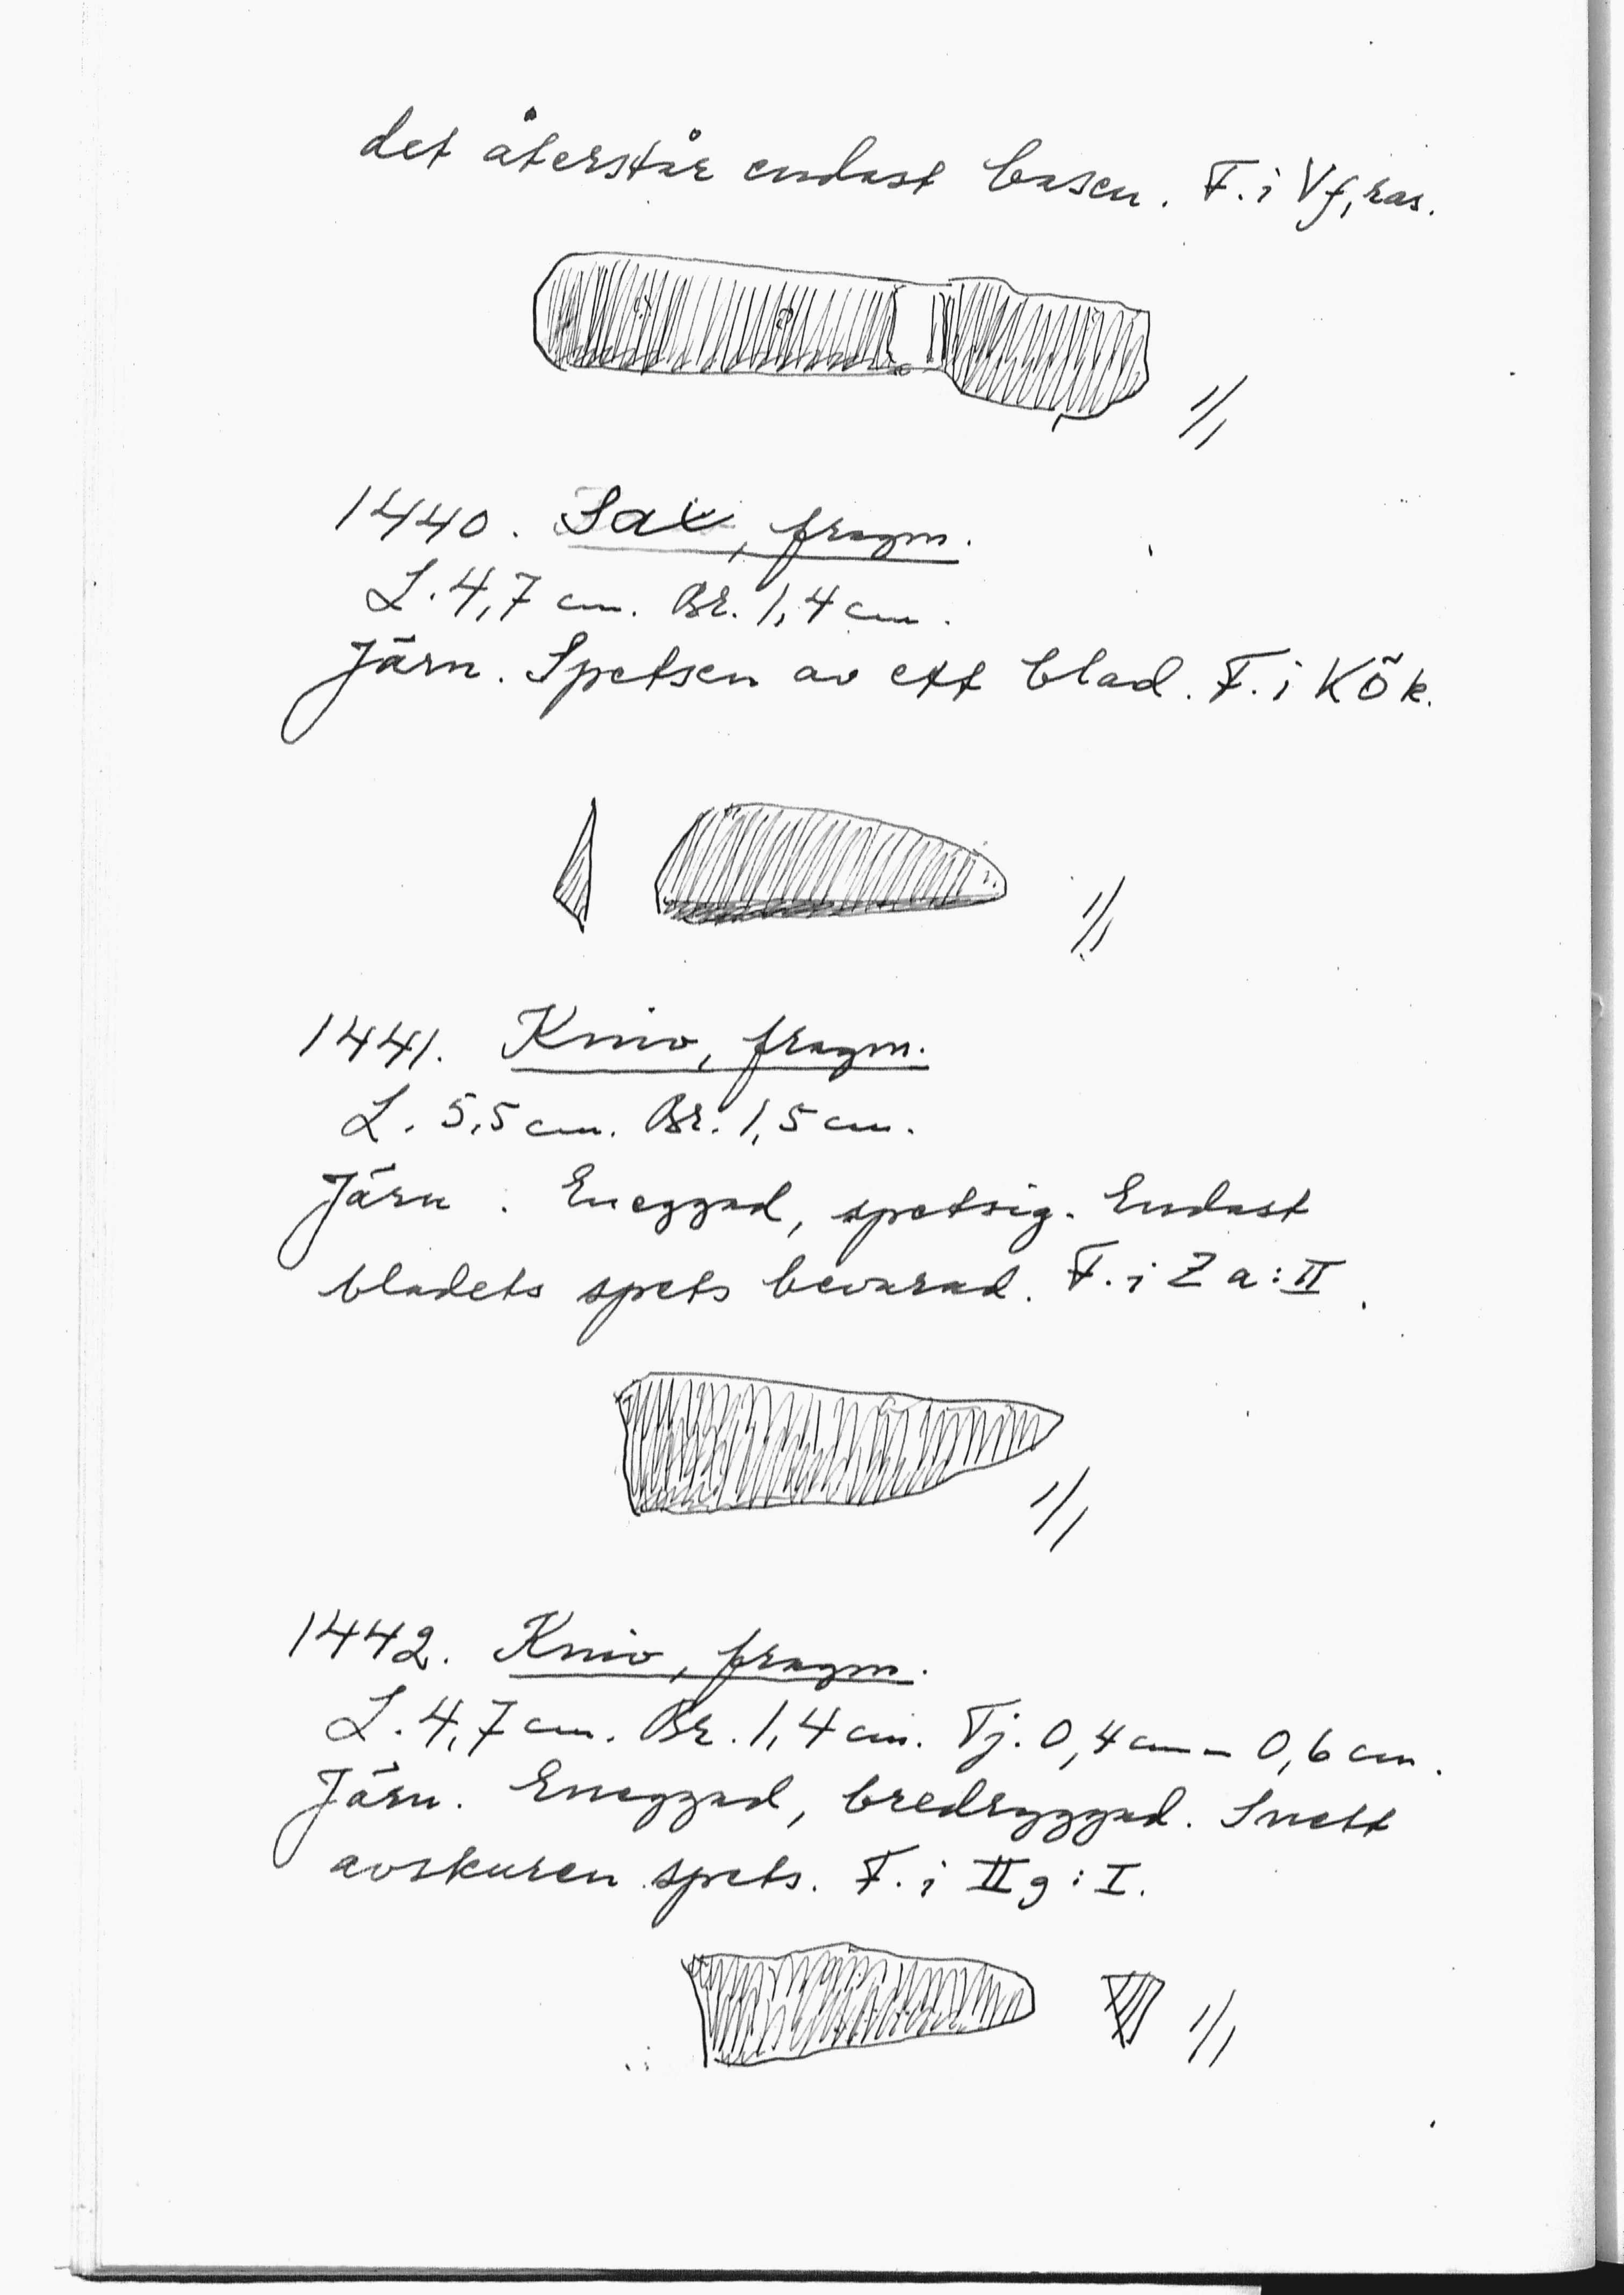 det återstår endast basen. F. i Vf, ras.
1/1
1440. Sax, fragm.
L. 4,7 cm. Br. 1,4 cm.
Järn. Spetsen av ett blad. F. i KÖk.
1/1
1441. Kniv, fragm.
L. 5,5 cm. Br. 1,5 cm.
Järn. Eneggad, spetsig. Endast
bladets spets bevarad. F. i Za:II.
1/1
1442. Kniv, fragm.
L. 4,7 cm. Br. 1,4 cm. Tj. 0,4 cm - 0,6 cm.
Järn. Eneggad, bredryggad. Snett
avskuren spets. F. i IIg:I.
1/1